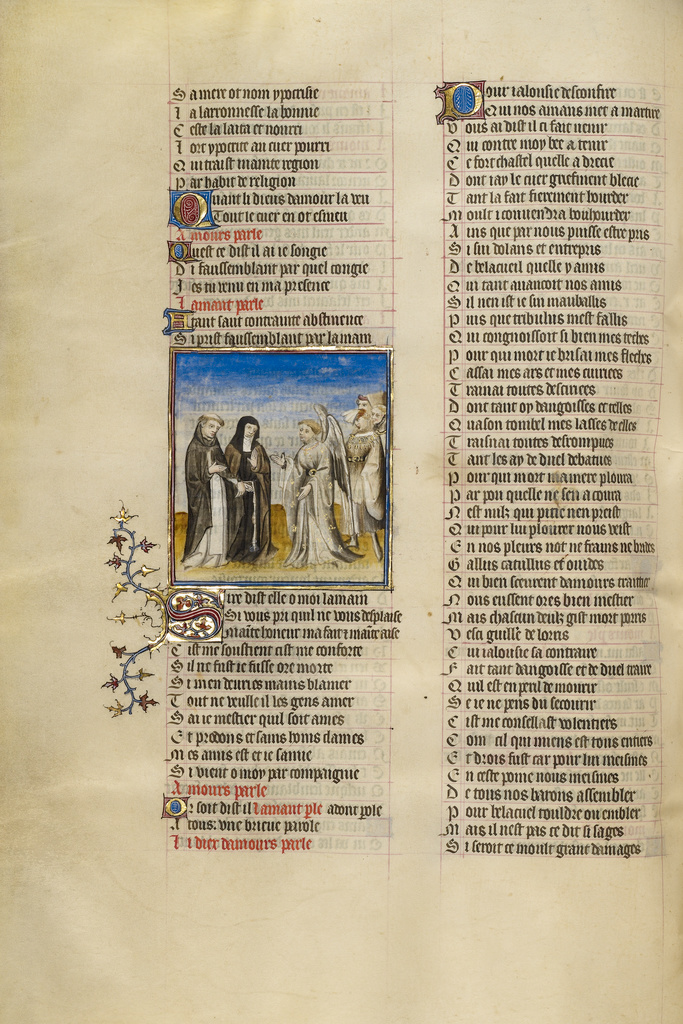 S a mere ot nom ypocrisie
L a larronnesse la honnie
C este la laita et nourri
L ort ypocrite au cuer pourri
Q ui traist mainte region
P ar habit de religion
Quant li diens damour la veu
Tout le cuer en ot esmeu
Amours parle
Quest ce dist il ai ie songie
D i faussemblant par quel congie
I es tu venu en ma presence
Lamant parle
Atant saut contrainte abstinence
S i prist faussemblant par la main
Sire dist elle o moi lamain
Si vous pri quil ne vous desplaise
Mainte honeur ma fait et mainte aise
C ist me soustient cist me conforte
S il ne fust ie fusse ore morte
S i men deuries mains blamer
T out ne veulle il les gens amer
S ai ie mestier quil soit ames
E t predons et sains homs clames
M es amis est et ie samie
S i vient o moy par compaignie
Amours parle
Or soit dist il Lamant ple adont pole
A tous vne brieue parole
Li diex damours parle
Pour ialousie desconfire
Qui nos amans met a martire
V ous ai dist il ci fait uenir
Q ui contre moy bee a tenir
C e fort chastel quelle a drecie
D ont iay le cuer griefment blecie
T ant la fait fierement hourder
M oult i conuendra bouhourder
A ins que par nous puisse estre pris
S i sui dolans et entrepris
D e belacueil quelle y a mis
Q ui tant auancoit nos amis
S il nen ist ie sui maubaillis
P uis que tribulus mest faillis
Q ui congnoissoit si bien mes teches
P our qui mort ie brisai mes fleches
C assai mes ars et mes cuiries
T rainai toutes desciries
D ont tant oy dangoisses et telles
Q ua son tombel mes lasses de elles
T raisnai toutes desrompues
T ant les ay de duel debatues
P our qui mort ma mere ploura
P ar pou quelle ne sen acoura
N est nulz qui pitie nen preist
Q ui pour lui plourer nous veist
E n nos pleurs not ne frains ne brides
G allus catullus et ouides
Q ui bien sceurent damours traitier
N ous eussent ores bien mestier
M ais chascun deulz gist mort porris
V esci guille de lorris
C ui ialousie sa contraire
F ait tant dangoisse et de duel traire
Q uil est en peril de mourir
S e ie ne pens du secourir
C ist me consellast volentiers
C om cil qui miens est tous entiers
E t drois fust car pour lui meismes
E n ceste poine nous meismes
D e tous nos barons assembler
P our belacuel touldre ou embler
M ais il nest pas ce dit si sages
S i seroit ce moult grant damages